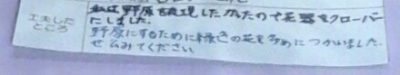 工夫した
ところ
私は野原を表現したかったので花器をクローバー
にしました。
野原にするために緑色の花を多めにつかいました。
ぜひみてください